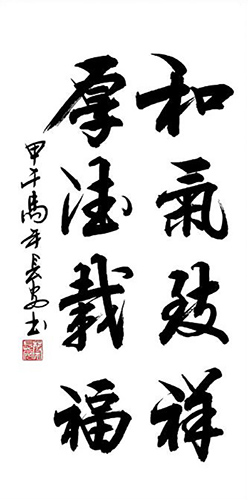 和氣致祥
厚德載福
甲午馬年長安書